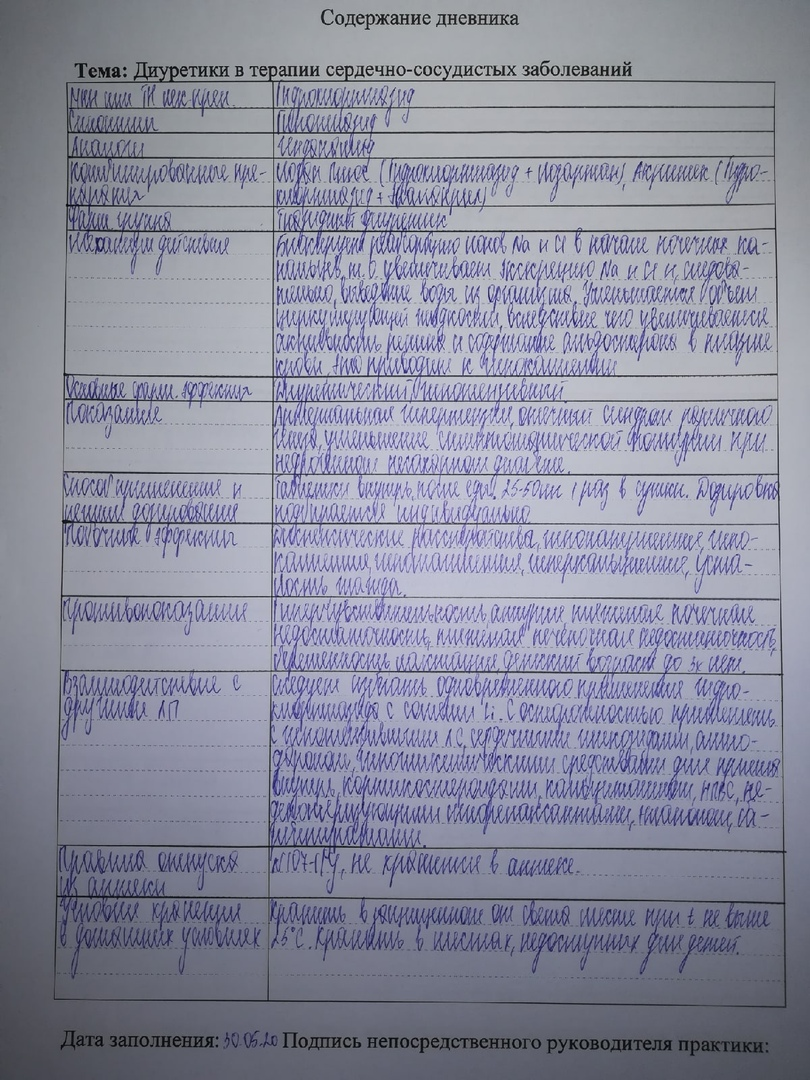 Содержание дневника
Тема: Диуретики в терапии сердечно-сосудистых заболеваний
МНН или ТН лек. преп. Гидрохлортиазид
Синонимы Гипотиазид
Аналоги Индапамид
Комбинированные пре- Лозап плюс (Гидрохлортиазид + лозартан), Акримек (Гидро-
параты хлортиазид + эналаприл)
Фарм. группа Тиазидный диуретик
Механизм действия Блокируют реабсорбцию ионов Na и Cl в начале почечных ка-
нальцев, т. о. увеличивает экскрецию Na и Cl и, следова-
тельно, выведение воды из организма. Уменьшается объем
циркулирующей жидкости, вследствие чего увеличивается
активность ренина и содержание альдостерона в плазме
крови. Это приводит к гипокалиемии
Основные фарм. эффекты Диуретический, Гипотензивный.
Показание Артериальная гипертензия, отечный синдром различного
генеза, уменьшение симптоматической полиурии при
несахарном диабете.
Способ применения и Таблетки внутрь, после еды. 25-50мг 1 раз в сутки. Дозировка
режим дозирования подбирается индивидуально
Побочные эффекты расстройства, гипонатриемия, гипо-
калиемия, гипомагниемия, гиперкальциемия, уста-
лость, жажда.
Противопоказание Гиперчувствительность, анурия, тяжелая почечная
недостаточность, тяжелая печеночная недостаточность,
беременность, лактация, детский возраст до 3х лет.
Взаимодействие с Следует избегать одновременного применения гидро-
другими ЛП хлортиазида с солями Li. С осторожностью применять
с гипотензивными ЛС, сердечными гликозидами, амио-
дароном, гипогликемическими средствами для приема
внутрь, кортикостероидами, кальцитонином, НПВС, не-
деполяризующими миорелаксантами,
Правила отпуска №107-1/у, не хранится в аптеке.
из аптеки
Условия хранения Хранить в защищенном от света месте при t не выше
в домашних условиях 25°C. Хранить в местах, недоступных для детей.
Дата заполнения: 30.05.20 Подпись непосредственного руководителя практики: